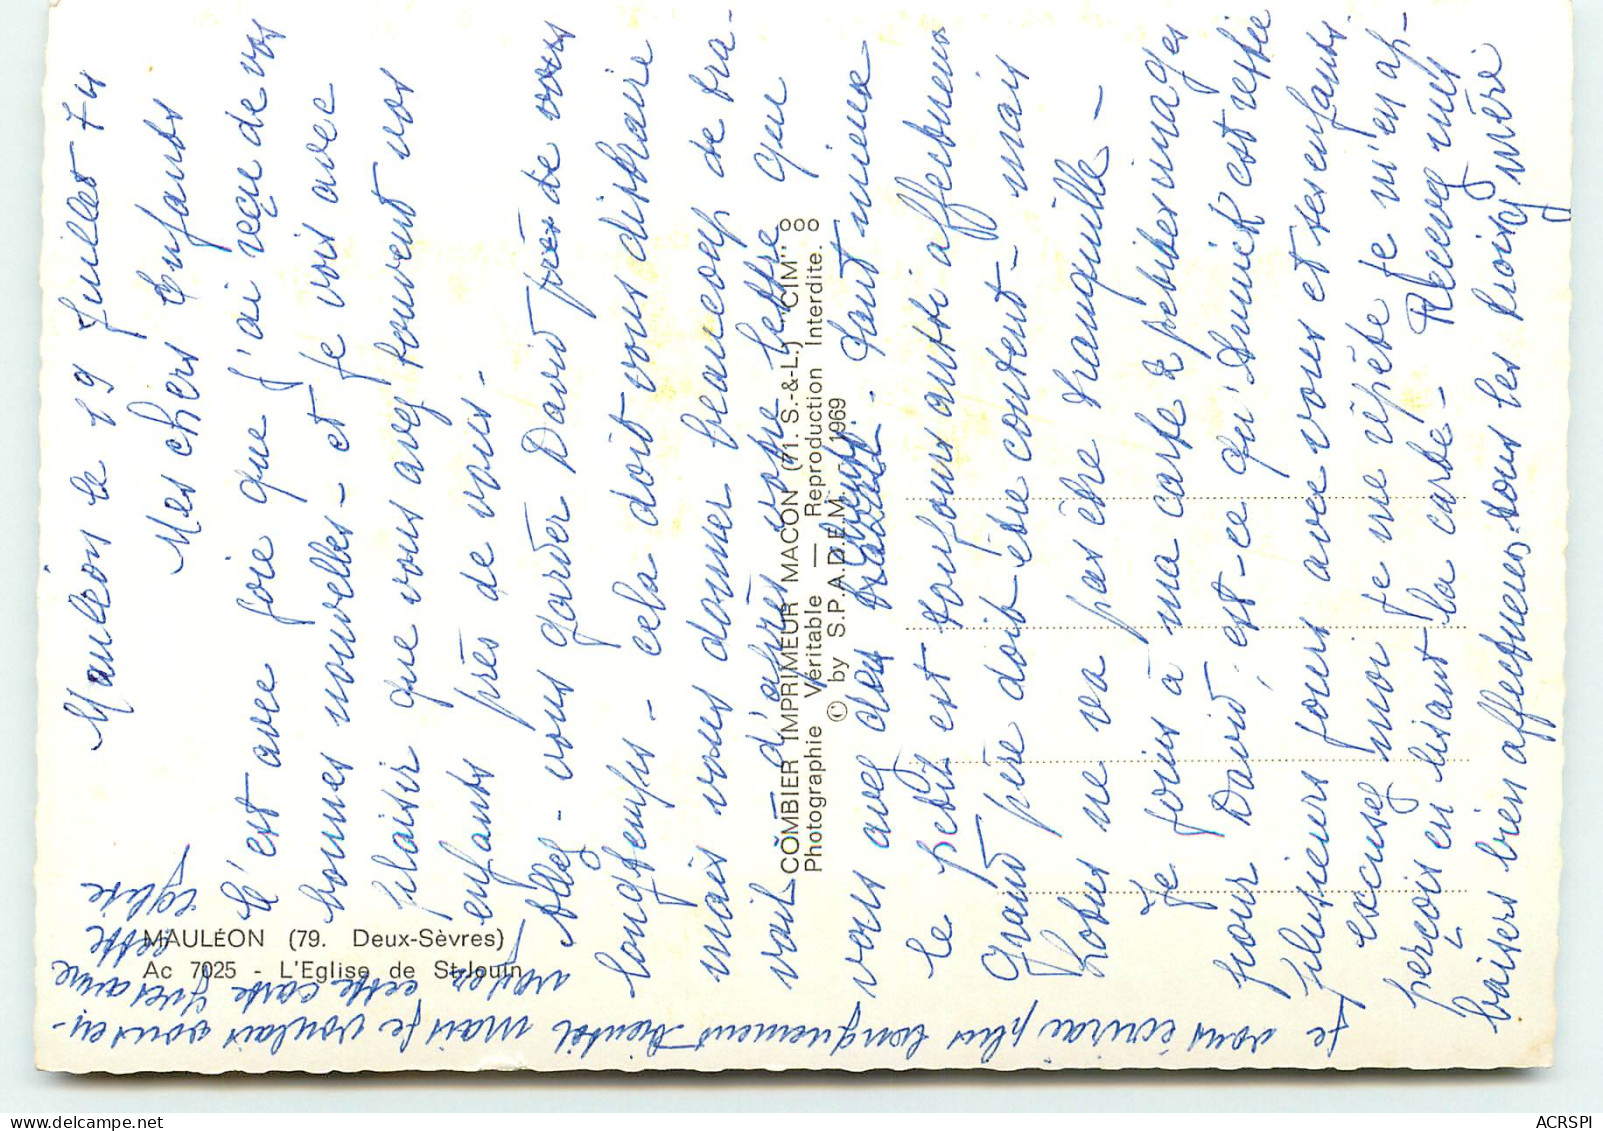 Mauléon le 19 Juillet 74
Mes chers Enfants
C'est avec joie que j'ai reçue de vos
bonnes nouvelles - et je vois avec
plaisir que vous avez souvent vos
enfants près de vous -
Allez-vous garder David près de vous
longtemps - cela doit vous distraire
mais vous donner beaucoup de tra-
vail d'après votre lettre que
vous avez des travaux. Tant mieux
le petit est toujours aussi affectueux
Grand père doit être content - mais
Lotus ne va pas être tranquille -
Je joins à ma carte 2 petites images
pour David, est-ce qu'Annick est restée
plusieurs jours avec vous et ses enfants
excusez moi je me répète je m'en ap-
perçois en lisant la carte - Recevez mes
baisers bien affectueux tous les trois mère
Je vous écrirai plus longuement bientôt mais je voulais vous en-
voyer cette carte
cette
église
MAULÉON (79. Deux-Sèvres)
Ac 7025 - L'Eglise de St-Jouin
COMBIER IMPRIMEUR MACON (71. S.-&-L.) "CIM"
Photographie Véritable — Reproduction Interdite.
© by S.P.A.D.E.M. 1969
ACRSPI